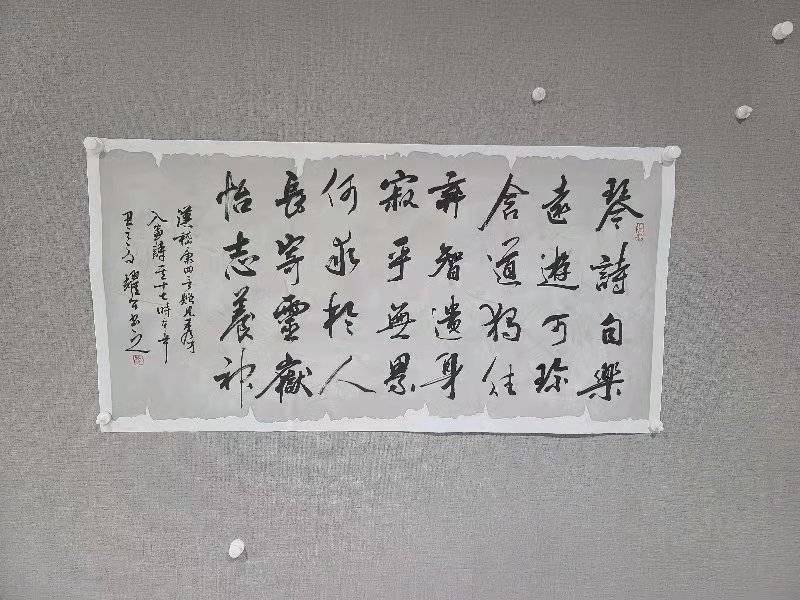 琴詩自樂
遠遊可珍
含道獨往
棄智遺身
寂乎無累
何求於人
長寄靈嶽
怡志養神
漢嵇康四言贈兄秀才
入軍詩之十七時在辛
丑之 耀